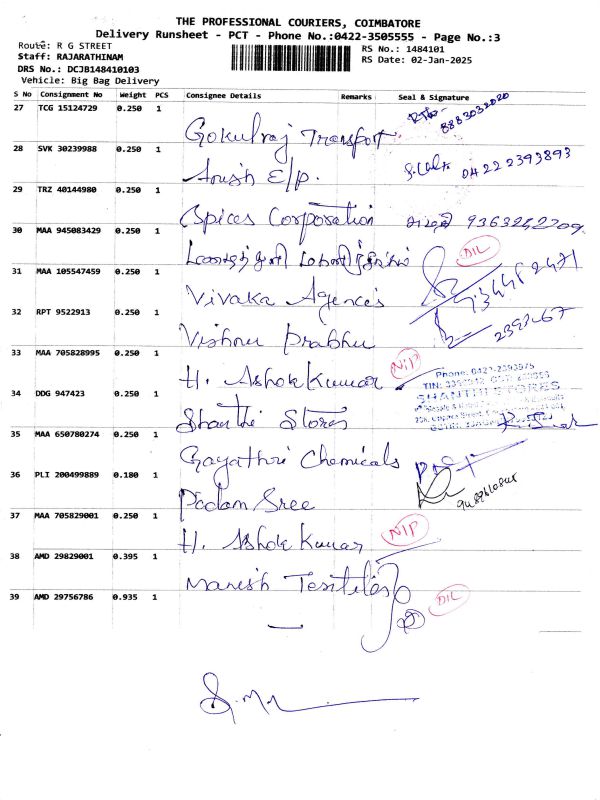 THE PROFESSIONAL COURIERS, COIMBATORE
Delivery Runsheet - PCT - Phone No.:0422-3505555 - Page No.:3
Route: R G STREET
RS No.: 1484101
Staff: RAJARATHINAM
RS Date: 02-Jan-2025
DRS No.: DCJB148410103
Vehicle: Big Bag Delivery
S No Consignment No Weight PCS Consignee Details Remarks Seal & Signature
27 TCG 15124729 0.250 1
8883032020
Gokulraj Transport
28 SVK 30239988 0.250 1
04222393893
Anish E/p.
29 TRZ 40144980 0.250 1
Spices Corporation
30 MAA 945083429 0.250 1
DIL
31 MAA 105547459 0.250 1
Vivaka Agences
32 RPT 9522913 0.250 1
Vishnu Prabhu
33 MAA 705828995 0.250 1
NIP
H. Ashok Kumar
Phone: 0422-2393975
34 DDG 947423 0.250 1
SHANTHI STORES
Shanthi Stores
35 MAA 650780274 0.250 1
Gayathri Chemicals
36 PLI 200499889 0.180 1
Padam Sree
37 MAA 705829001 0.250 1
NIP
H. Ashok Kumar
38 AMD 29829001 0.395 1
Manish Textiles
39 AMD 29756786 0.935 1
DIL